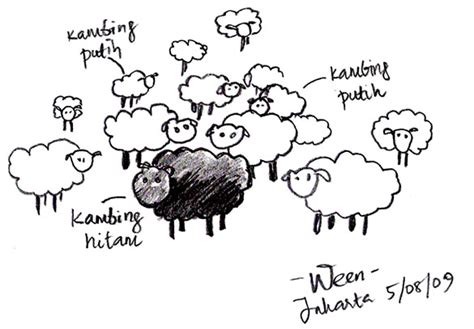 kambing
putih
kambing
putih
kambing
hitam
- Ween -
Jakarta 5/08/09